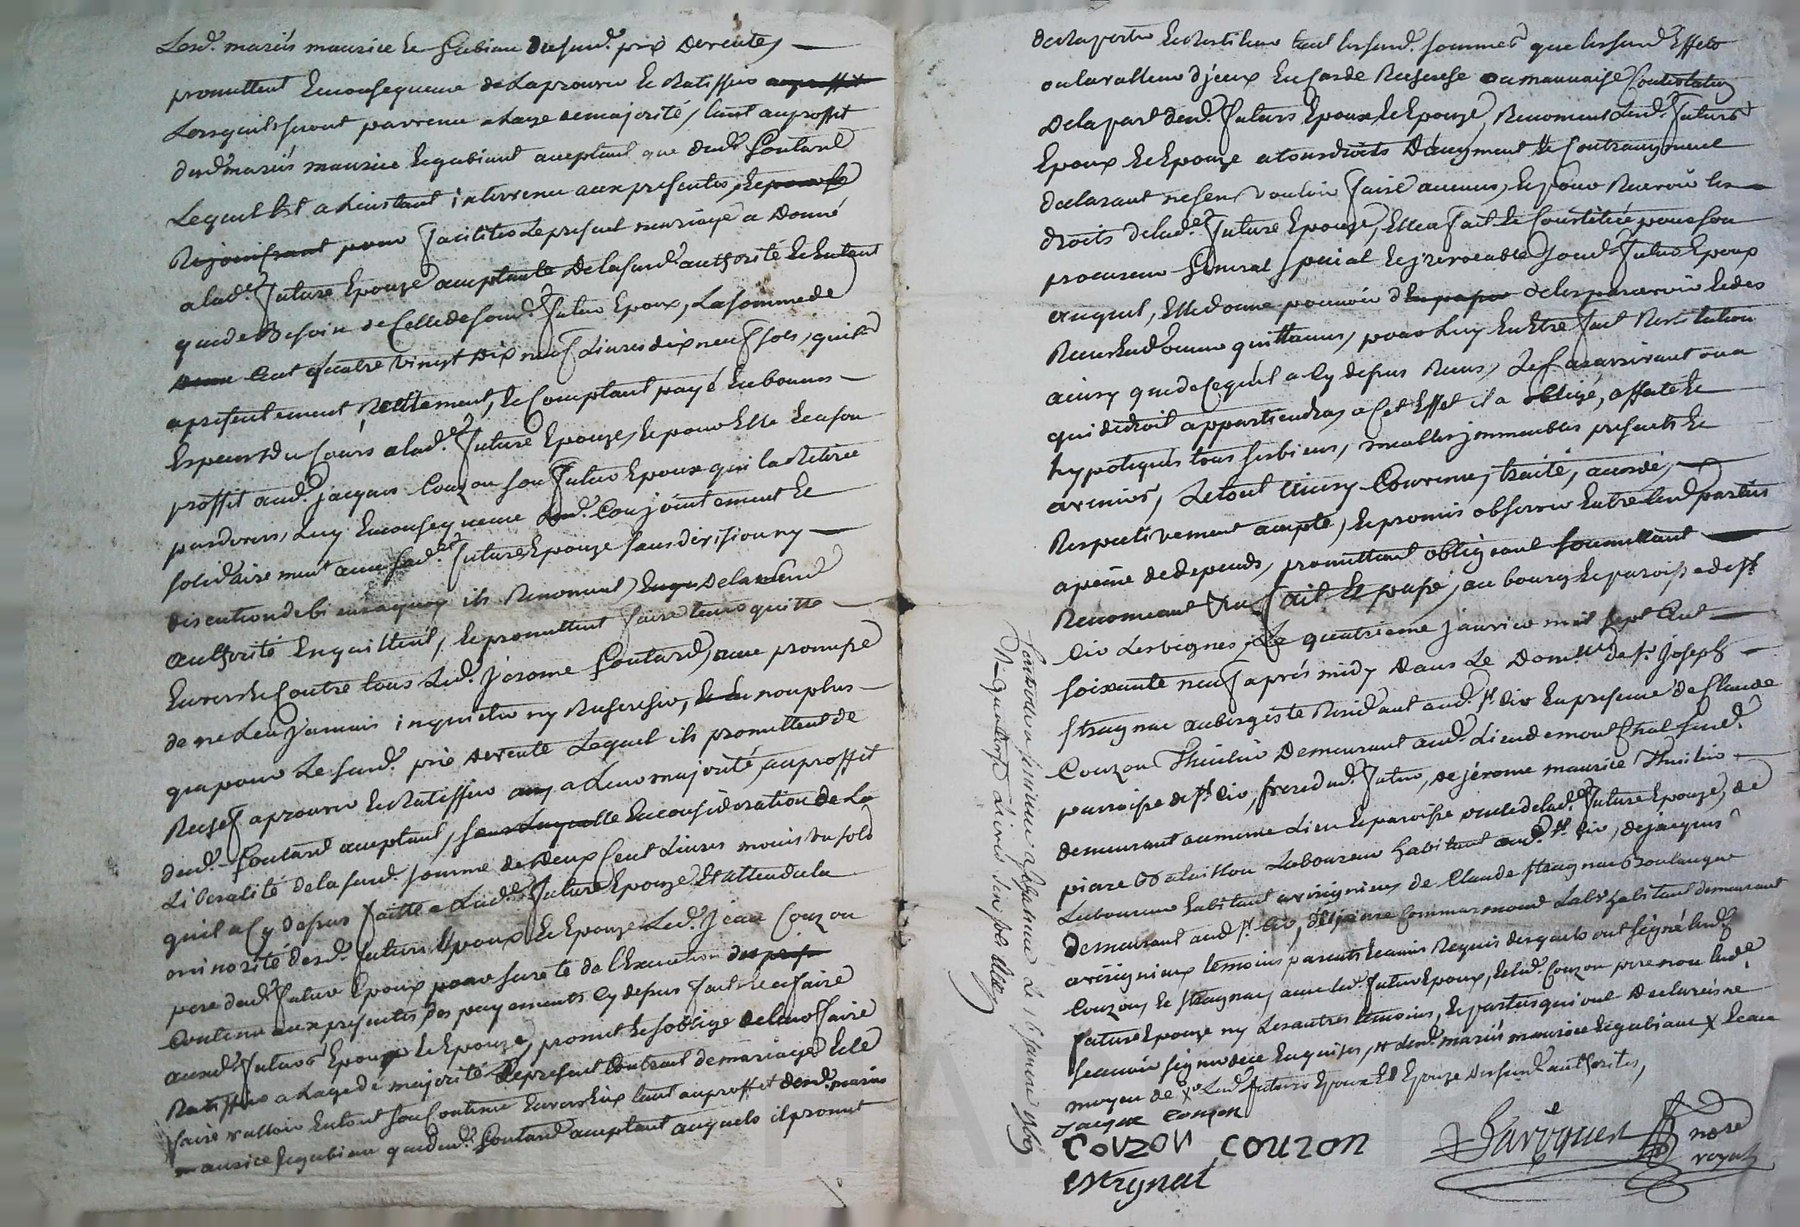 Lesd. mariés maurice et gubian susd. prix de vente,
promettent en conséquence de laprouver et Ratiffier
Lorsquils seront parvenus a laage de majorité, tant au proffit
desd. mariés maurice et gubiant acceptant que dud. Goutard
Lequel Est a Linstant intervenu aux presentes, et
pour faciliter Le présent mariage a Donné
a lad. future Epouze acceptante De la susd. authorité et Entant
que de Besoin de Celle de son d. futur Epoux, La somme de
Cent quatre vingt dix neuf Livres dix neuf sols, quil a
a présentement Réellement, et Comptant payé En bonnes
Espèces du Cours a lad. future Epouze, et pour Elle En son
proffit aud. jacques Couzon son futur Epoux qui la Retirée
pardevers Luy En consequence Conjointement et
solidairement avec sad. future Epouze sans division ny
discution de biens a quoy ils Renoncent, De la susd.
authorité En quittent, et promettent faire tenir quitte
Envers et Contre tous Led. jerome Goutard, avec promesse
de ne Len jamais inquieter ny Rechercher, non plus
que pour Le susd. prix de vente Lequel ils promettent de
Rechef aprouver et Ratiffier a Leur majorité, au proffit
dud. Goutard acceptant, En considération de La
Liberalité de la susd. somme de Deux Cent Livres moins dix sols
quil a Cy dessus faitte a Lad. future Epouze Et attendu la
minorité desd. futurs Epoux et Epouze Led. jean Couzon
pere dud. futur Epoux pour sureté de l'Execution du
Contenu aux présentes, des payements Cy dessus faits et a faire
auxd. futurs Epoux et Epouze, promet et s'oblige de leur faire
Ratiffier a Laage de majorité Le présent Contrat de mariage et le
faire valloir En tout son Contenu Envers Eux tant au proffit desd. mariés
maurice et gubian que dud. Goutard acceptant auxquels il promet
Ratiffier et Restituer tant lesd. sommes que lesd. Effets
ou la valleur d'jceux En Cas de Recherche ou mauvaise Contestation
De la part desd. futurs Epoux et Epouze, Renoncent Lesd. futurs
Epoux et Epouze a tous droits D'augment et Contraugment
declarant nesen vouloir faire aucuns, et pour Recevoir les
droits de lad. future Epouze, Elle a fait et Constitué pour son
procureur General special et jrrévocable sond. futur Epoux
auquel, Elle donne pouvoir de les percevoir et des
Recus En donner quittances, pour Luy En Etre fait Restitution
ainsy que de ce quil a Cy dessus Reçu, Le Cas arrivant ou a
qui de droit appartiendra, a Cet Effet il a obligé, affecté et
hypotequé tous ses biens, meubles jmmeubles presents et
avenirs, Le tout ainsy Convenu, traité, accordé,
Respectivement accepté, et promis observer Entre Lesd. parties
a peine de depends, promettant obligeant soumettant
Renonceant &a fait et passé, au bourg et paroisse de st
Cir Les vignes, Le quatrieme janvier mil sept Cent
soixante neuf aprés midy Dans Le Domlle de sr joseph
Stragnac aubergiste Résidant aud. st Cir En presence de Claude
Couzon Thuilier Demeurant aud. Lieu de mont Chal susd.
parroisse de st Cir, frere dud. futur, de jérome maurice Thuilier
demeurant au meme Lieu et paroisse oncle de lad. future Epouze, de
piare Laboureur habitant aud. st Cir, de jacques
Laboureur habitant a virigneux de Claude stragnac Boulanger
demeurant aud. st Cir, de Labr habitant demeurant
a virigneux temoins parents et amis Requis desquels ont signé Lesd.
Couzon, et stragnac, avec led. futur Epoux, et led. Couzon pere non lad.
future Epouze ny Les autres temoins, et parties qui ont Declaré ne
scavoir signer de ce Enquises, et lesd. mariés maurice et gubian X et au
moyen de Lesd. futurs Epoux Et Epouze des susd. authorités,
jaque couzon
couzon couzon
estrgnat
nore
royal
Controllé a le 16 janvier 1769
Recu quatorze Livres un sol